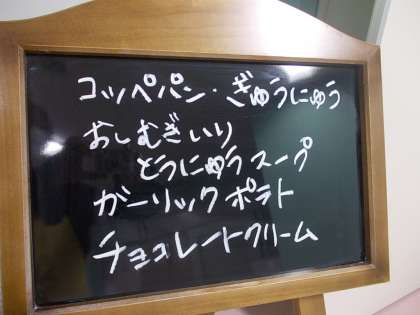 コッペパン・ぎゅうにゅう
おしむぎいり
とうにゅうスープ
ガーリックポテト
チョコレートクリーム